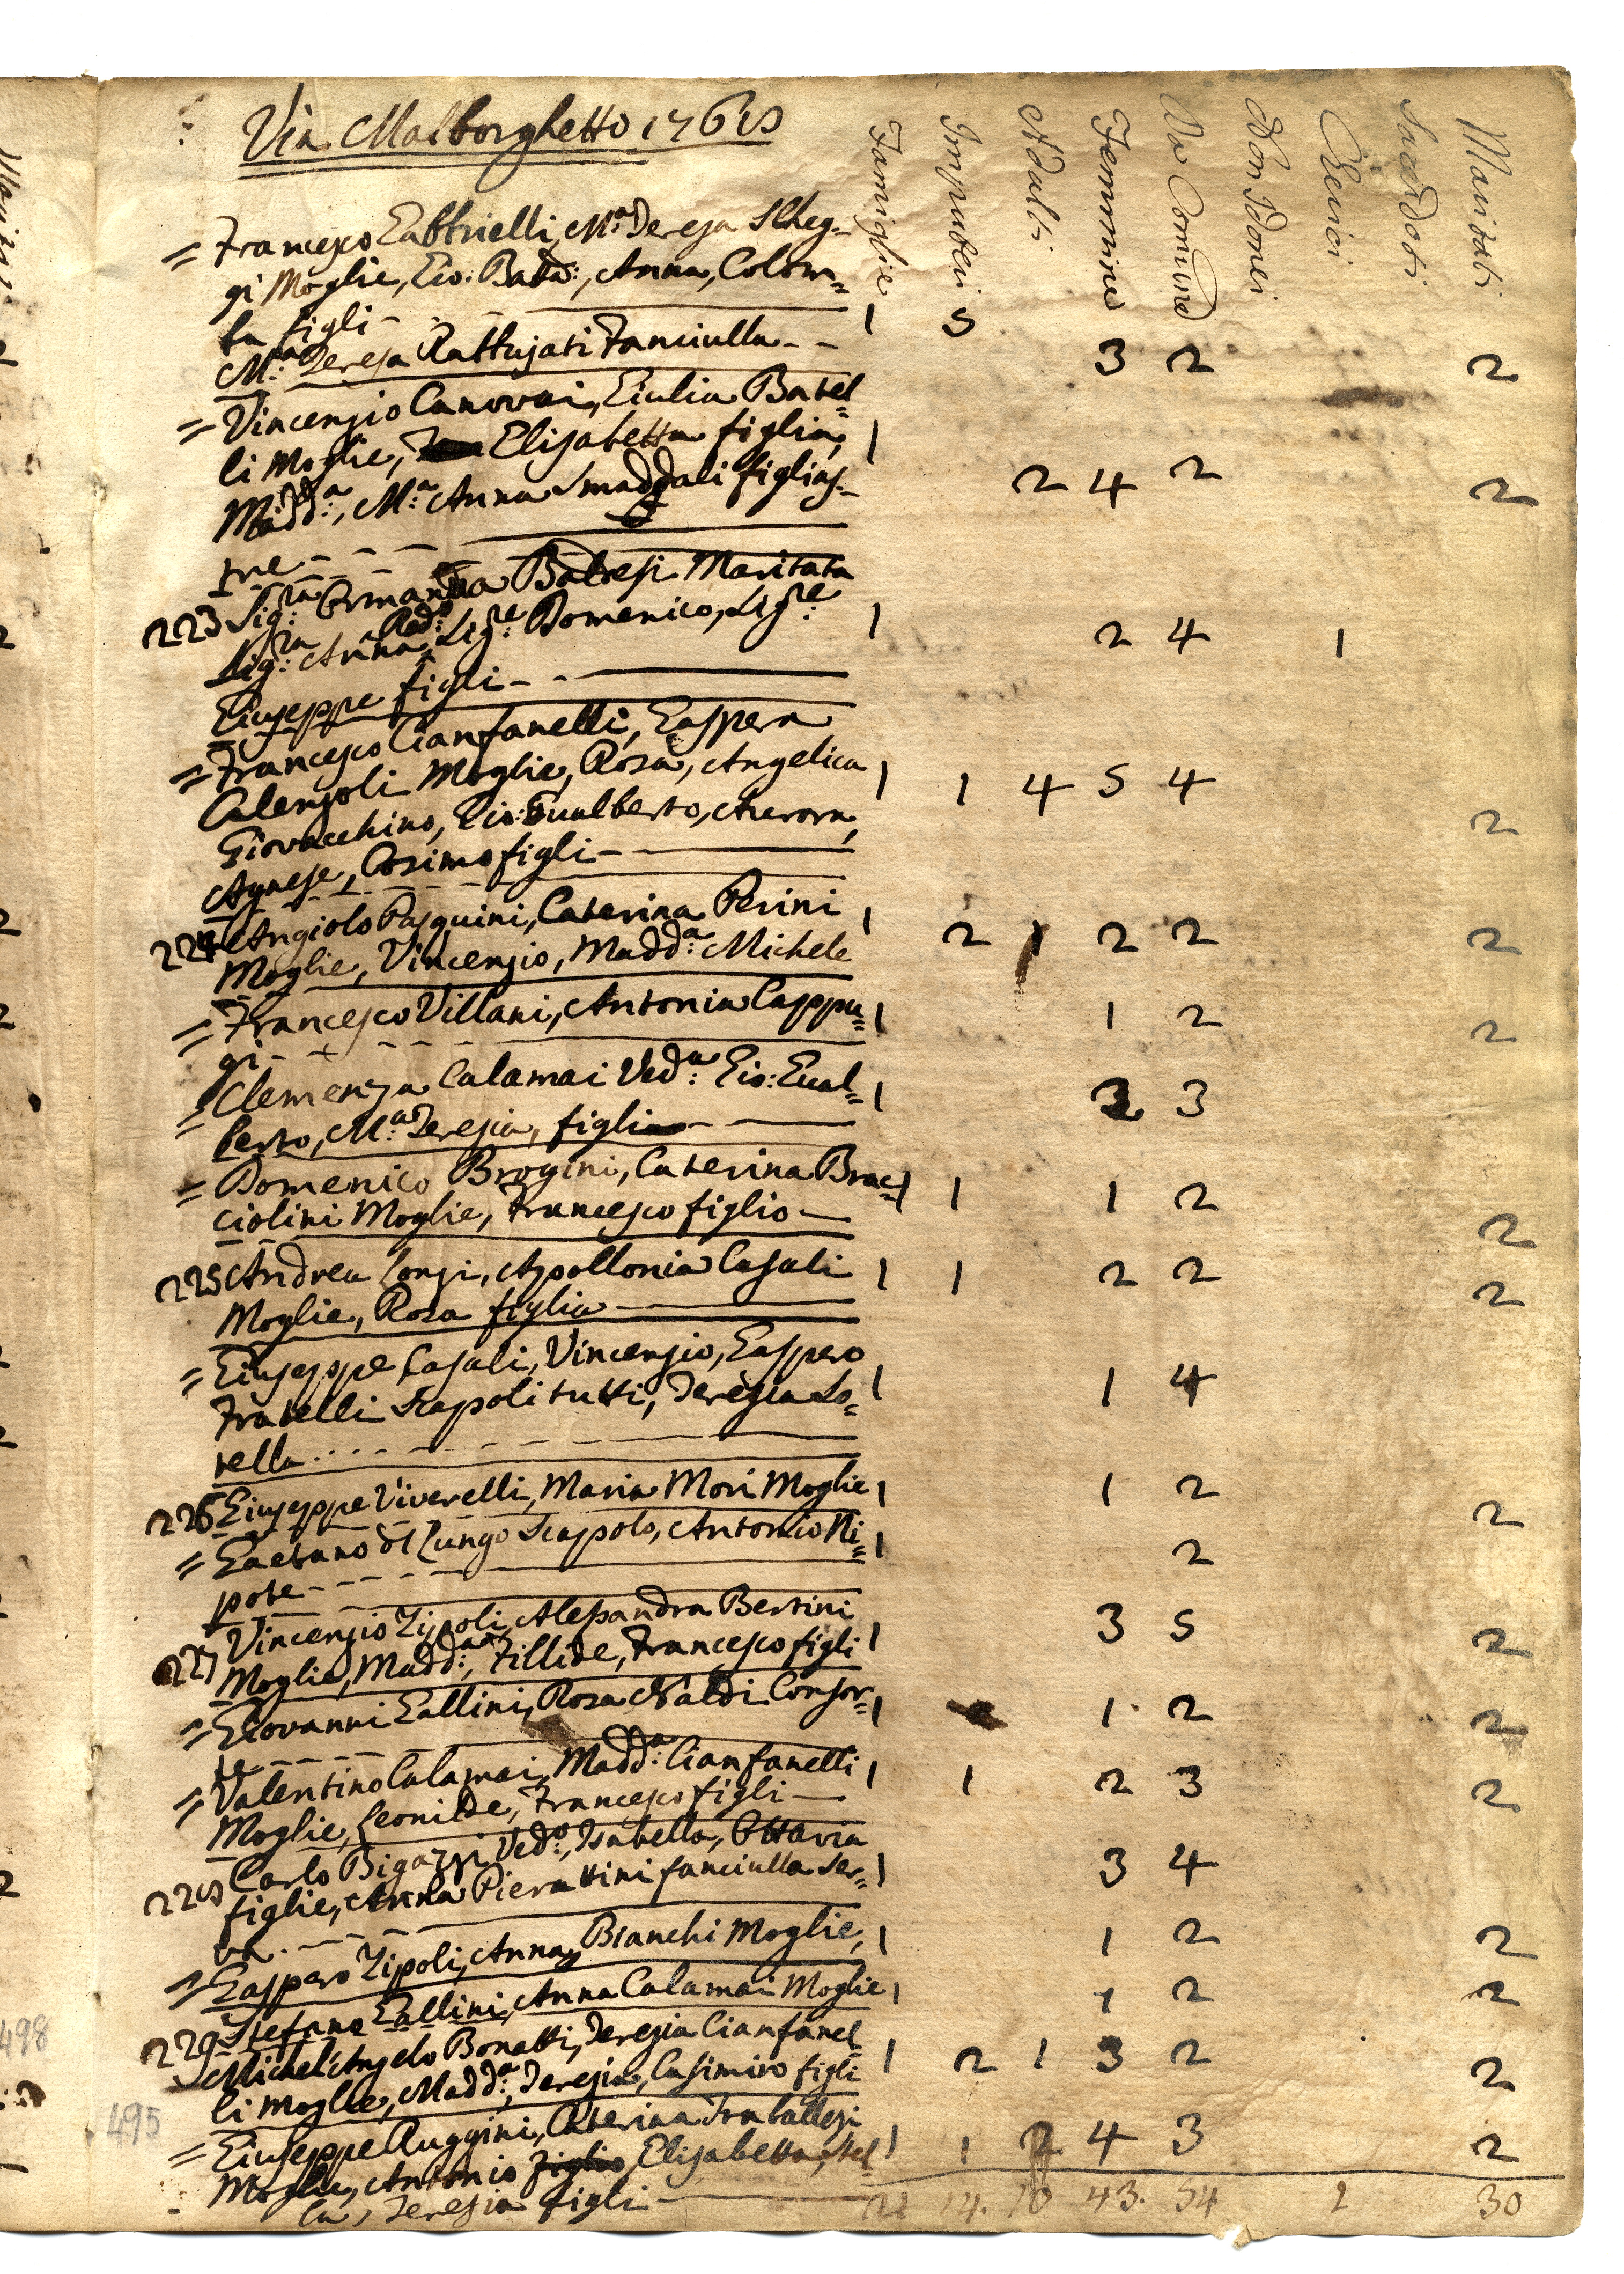 Via Malborghetto 1768
Famiglie Impuberi Adulti Femmine Da Comune Non Idonei Cherici Sacerdoti Maritati
= Francesco Gabbrielli, M.a Teresa Scheg-
gi Moglie, Gio: Batta:, Anna, Colom=
ba figli - - 1 3
M.a Teresa Rattujati Fanciulla - - 3 2 2
= Vincenzio Canovai, Giulia Batel=
li Moglie, Elisabetta figlia, 1
Madd.a, M.a Anna Smaddali figlias- 2 4 2 2
tre - - - -
223 Sig.ra Ormanna Baldesi Maritata
Sig.ra Anna, Red.o Sig.re Domenico, Sig.re 1 2 4 1
Giuseppe figli - -
= Francesco Cianfanelli, Gaspera
Calenzoli Moglie, Rosa, Angelica 1 1 4 5 4 2
Giovacchino, Gio: Gualberto, Aurora,
Agnese, Cosimo figli -
224 Angiolo Pasquini, Caterina Perini 1 2 1 2 2 2
Moglie, Vincenzio, Madd.a Michele
= Francesco Villani, Antonia Cappu= 1 1 2 2
gi - + - - - -
= Clemenza Calamai Ved.a Gio: Gual= 1 3 3
berto, M.a Teresia, figli -
= Domenico Brogini, Caterina Brac= 1 1 1 2
ciolini Moglie, Francesco figlio - 2
225 Andrea Conzi, Apollonia Casali 1 1 2 2 2
Moglie, Rosa figlia
= Giuseppe Casali, Vincenzio, Gaspero
Fratelli Scapoli tutti, Teresia So= 1 1 4
rella . . . - - - -
226 Giuseppe Viverelli, Maria Mori Moglie 1 1 2 2
= Gaetano del Lungo Scapolo, Antonio Ni= 1 2
pote - - - -
227 Vincenzio Zipoli, Alessandra Bertini
Moglie, Madd.a, Fillide, Francesco figli 1 3 5 2
= Giovanni Gallini, Rosa Naldi Consor= 1 1 2 2
te - - - -
= Valentino Calamai, Madd.a Cianfanelli 1 1 2 3 2
Moglie, Leonilde, Francesco figli -
228 Carlo Bigazzi Ved.o, Isabella, Ottavia
figlie, Anna Pierattini fanciulla Ser= 1 3 4
va . - - - -
= Gaspero Zipoli, Anna Bianchi Moglie, 1 1 2 2
Stefano Gallini, Anna Calamai Moglie 1 1 2 2
229 Michel'Angelo Bonatti, Teresia Cianfanel= 1 2 1 3 2 2
li Moglie, Madd.a, Teresia, Casimiro figli
= Giuseppe Ruggini, Caterina Traballesi
Moglie, Antonio figlio Elisabetta, Stel 1 1 2 4 3 2
la, Teresia figli
14. 10 43. 54 1 30
498
495